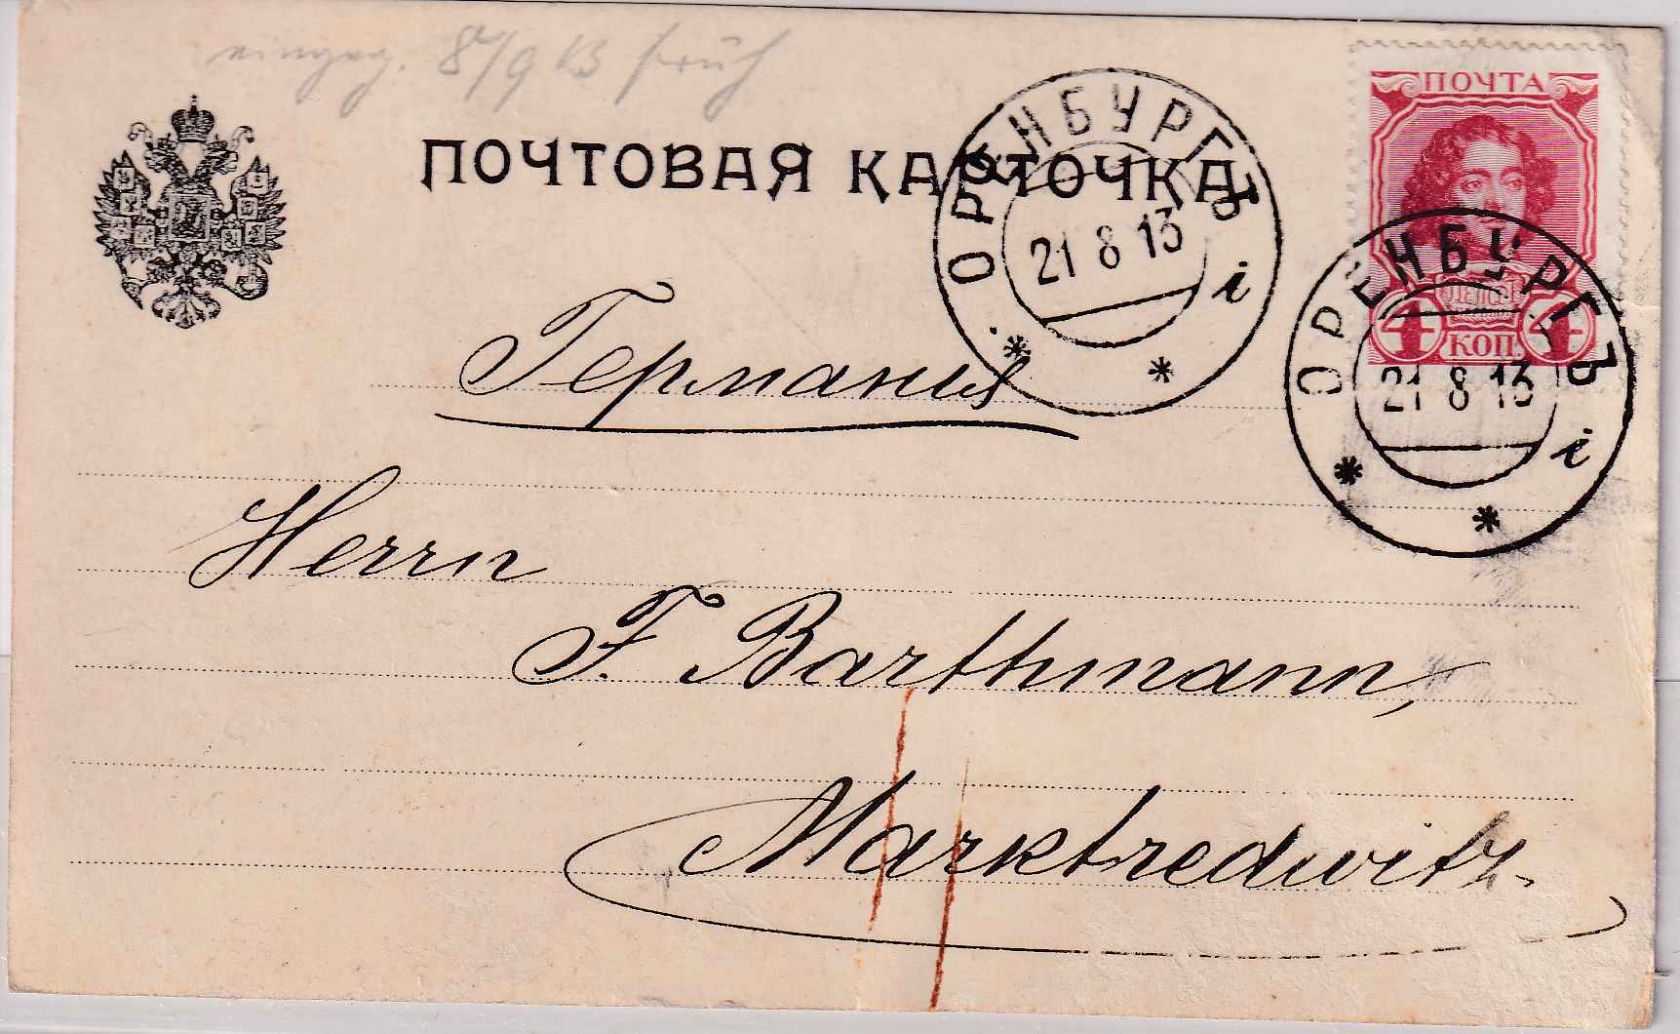 eingeg. 8/9 13 früh
ПОЧТОВАЯ КАРТОЧКА
ПОЧТА
4 КОП. 4
ОРЕНБУРГЪ
21 8 13
і
ОРЕНБУРГЪ
21 8 13
і
Германія
Herrn
F. Barthmann,
Marktredwitz.